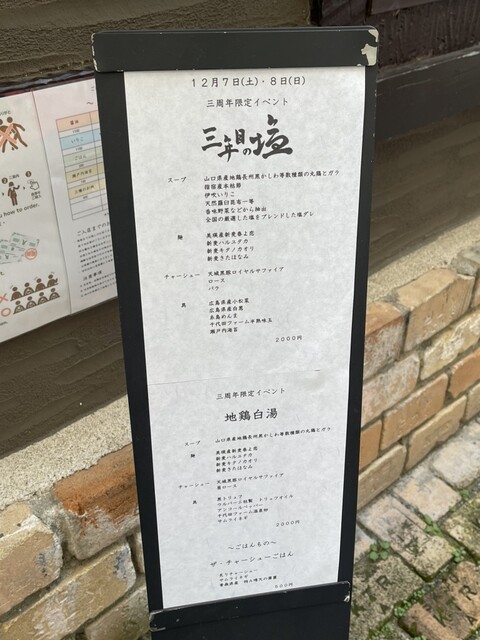 12月7日(土)・8日(日)
三周年限定イベント
三年目の塩
スープ 山口県産地鶏長州黒かしわ等数種類の丸鶏とガラ
指宿産本枯節
伊吹いりこ
天然羅臼昆布一等
香味野菜などから抽出
全国の厳選した塩をブレンドした塩ダレ
麺 美瑛産新麦春よ恋
新麦ハルユタカ
新麦キタノカオリ
新麦きたはなみ
チャーシュー 天城黒豚ロイヤルサファイア
ロース
バラ
具 広島県産小松菜
広島県産白葱
糸島めんま
千代田ファーム半熟味玉
瀬戸内海苔
2000円
三周年限定イベント
地鶏白湯
スープ 山口県産地鶏長州黒かしわ等数種類の丸鶏とガラ
麺 美瑛産新麦春よ恋
新麦ハルユタカ
新麦キタノカオリ
新麦きたはなみ
チャーシュー 天城黒豚ロイヤルサファイア
肩ロース
具 黒トリュフ
トリュフオイル
千代田ファーム温泉卵
サムライネギ
2000円
〜ごはんもの〜
ザ・チャーシューごはん
炙りチャーシュー
サムライネギ
500円
how to order.